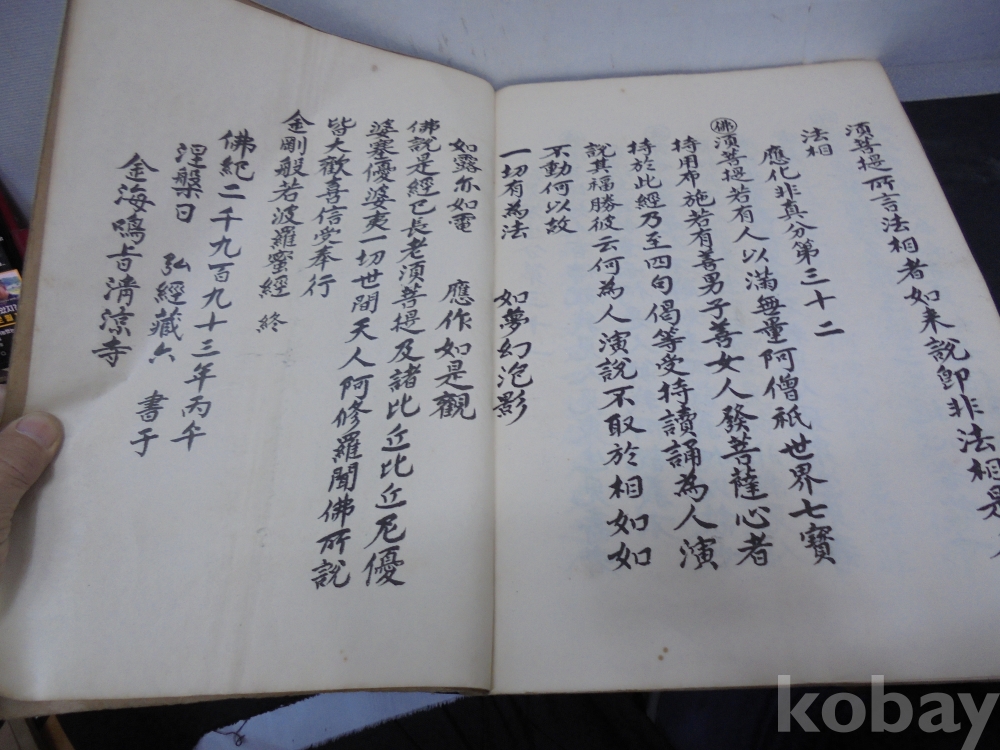 須菩提所言法相者如来說卽非法相是
法相
應化非真分第三十二
佛須菩提若有人以滿無量阿僧祇世界七寶
持用布施若有善男子善女人發菩薩心者
持於此經乃至四句偈等受持讀誦為人演
說其福勝彼云何為人演說不取於相如如
不動何以故
一切有為法 如夢幻泡影
如露亦如電 應作如是觀
佛說是經已長老須菩提及諸比丘比丘尼優
婆塞優婆夷一切世間天人阿修羅聞佛所說
皆大歡喜信受奉行
金剛般若波羅蜜經 終
佛紀二千九百九十三年丙午
涅槃日 弘經藏六 書于
金海鳴旨清涼寺
kobay